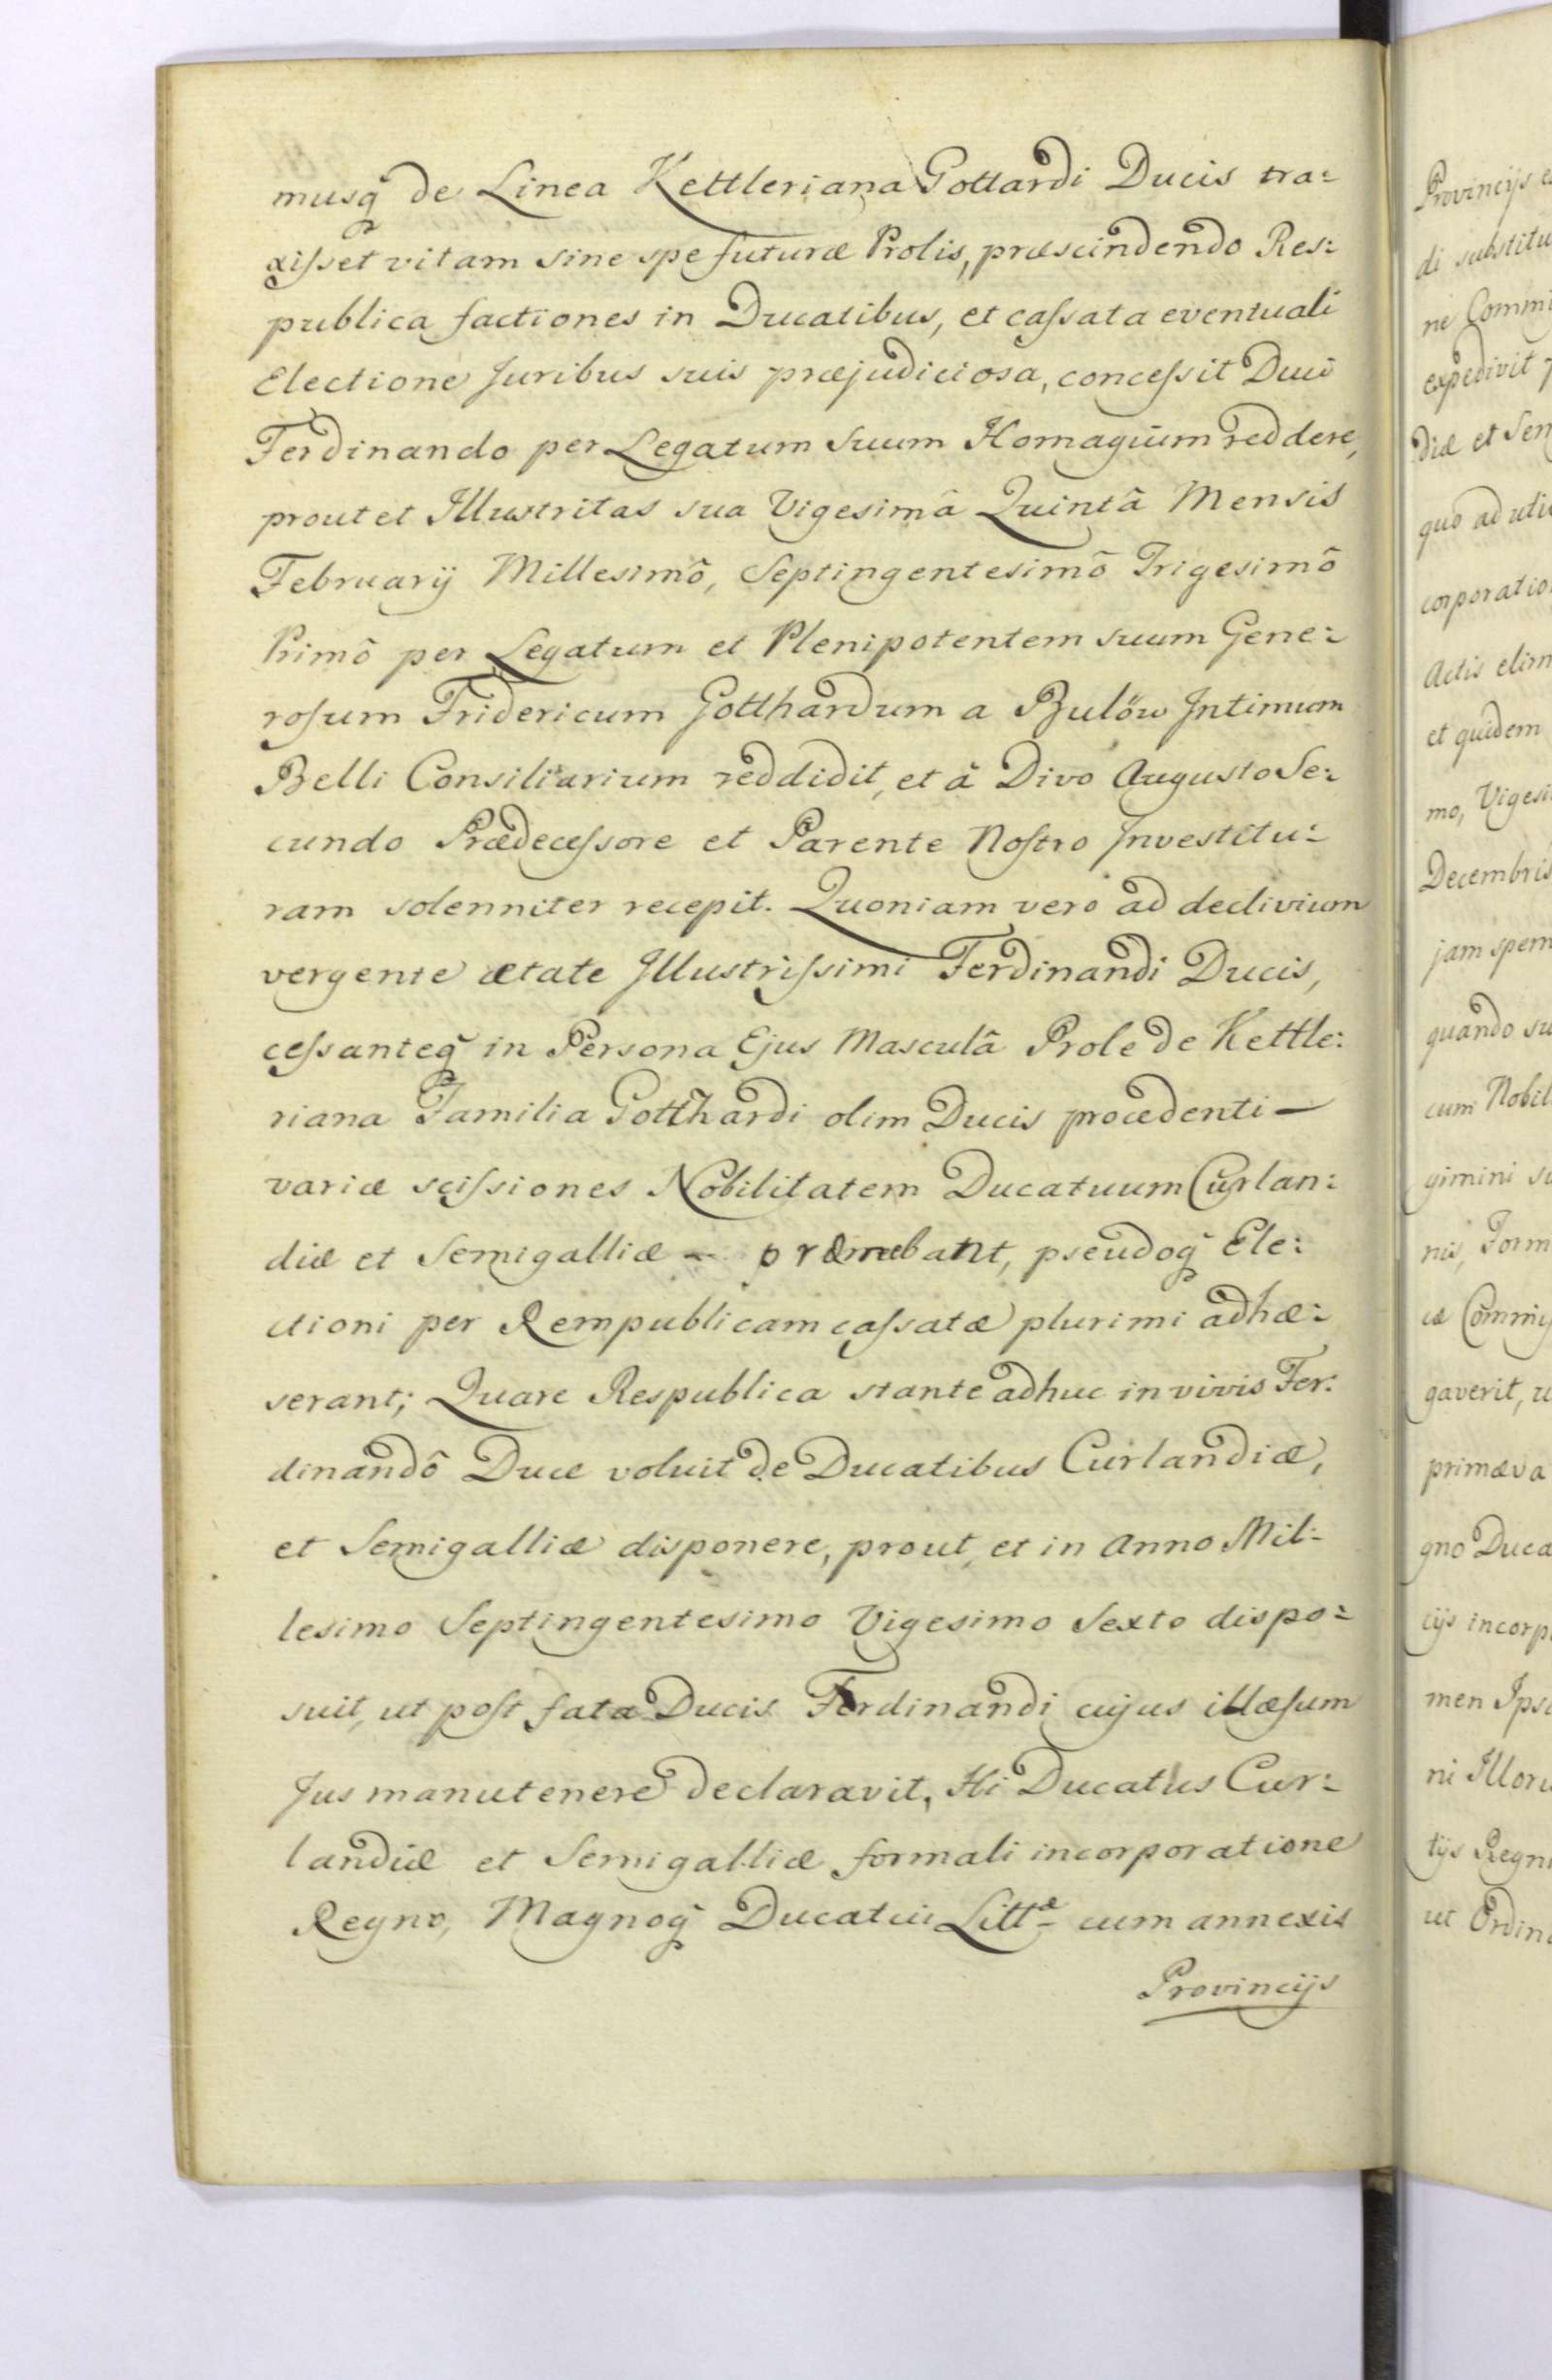 musq̃ de Linea Kettleriana Gottardi Ducis tra=
xisset vitam sine spe futuræ Prolis, præscindendo Res=
publica factiones in Ducatibus, et cassata eventuali
Electione Juribus suis præjudiciosa, concessit Duci
Ferdinando per Legatum Suum Homagium reddere,
prout et Illustritas sua Vigesimâ Quintâ Mensis
Februarij Millesimô, Septingentesimô Trigesimô
Primô per Legatum et Plenipotentem suum Gene=
rosum Fridericum Gotthardum a Bulöw Intimum
Belli Consiliarium reddidit, et â Divo Augusto Se=
cundo Prædecessore et Parente Nostro Investitu=
ram solenniter recepit. Quoniam vero ad declivium
vergente ætate Illustrissimi Ferdinandi Ducis,
cessanteq̃ in Persona Ejus Masculâ Prole de Kettle=
riana Familia Gotthardi olim Ducis procedenti —
variæ scissiones Nobilitatem Ducatuum Curlan=
diæ et Semigalliæ — premebant, pseudoq̃ Ele=
ctioni per Rempublicam cassatæ plurimi adhæ=
serant; Quare Respublica stante adhuc in vivis Fer=
dinandô Duce voluit de Ducatibus Curlandiæ,
et Semigalliæ disponere, prout, et in Anno Mil=
lesimo Septingentesimo Vigesimo Sexto dispo=
suit, ut post fata Ducis Ferdinandi cujus illæsum
Jus manutenere declaravit, Hi Ducatus Cur=
landiæ et Semigalliæ formali incorporatione
Regno, Magnoq̃ Ducatui Littæ cum annexis
Provincijs
Provincijs
di substitu
ne Commi
expedivit
diæ et Sem
quo ad uti
corporatio
Actis elim
et quidem
mo, Vigesi
Decembris
jam spem
quando su
cum Nobil
gimini su
nis, Form
cæ Commis
gaverit, u
primæva
gno Duca
cijs incorp
men Ipso
ni Illoru
tijs Regni
ut Ordina